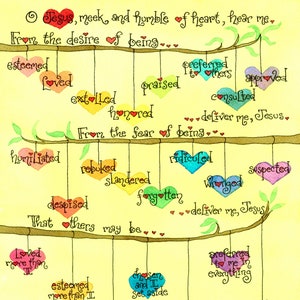 O Jesus, meek and humble of heart, hear me.
From the desire of being...
esteemed
loved
extolled
honored
praised
preferred to others
consulted
approved
...deliver me, Jesus
From the fear of being...
humiliated
despised
rebuked
slandered
forgotten
ridiculed
wronged
suspected
...deliver me, Jesus
What others may be...
loved
more than I
esteemed
more than I
chosen
and I
set aside
preferred
to me in
everything